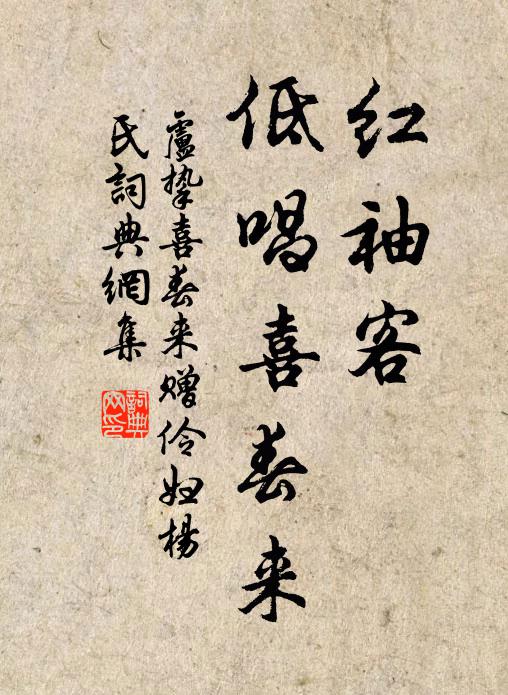 红袖客
低唱喜春来
盧挚喜春来赠伶妇楊
氏詞典網集
詞典
网印